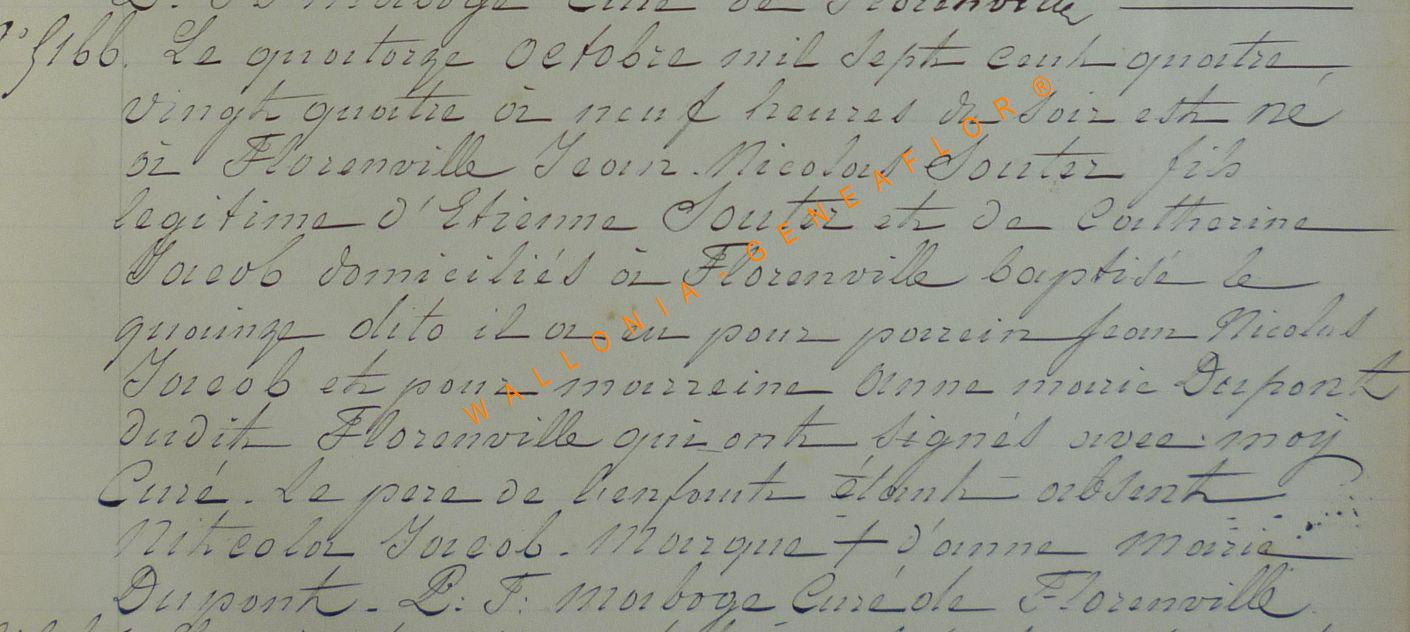 P. F. Maboge Curé de Florenville
N° 5166. Le quatorze Octobre mil sept cent quatre
vingt quatre à neuf heures du soir est né
à Florenville Jean-Nicolas Souter fils
legitime d'Etienne Souter et de Catherine
Jacob domiciliés à Florenville baptisé le
quainze dito il a eu pour parrein Jean Nicolas
Jacob et pour marreine Anne marie Dupont
dudit Florenville qui ont signés avec moÿ
Curé. Le pere de l'enfant étant absent
Nitcola Jacob. Marque + d'anne Marie
Dupont. P. F. Maboge Curé de Florenville
WALLONIA-GENEAFLOR®